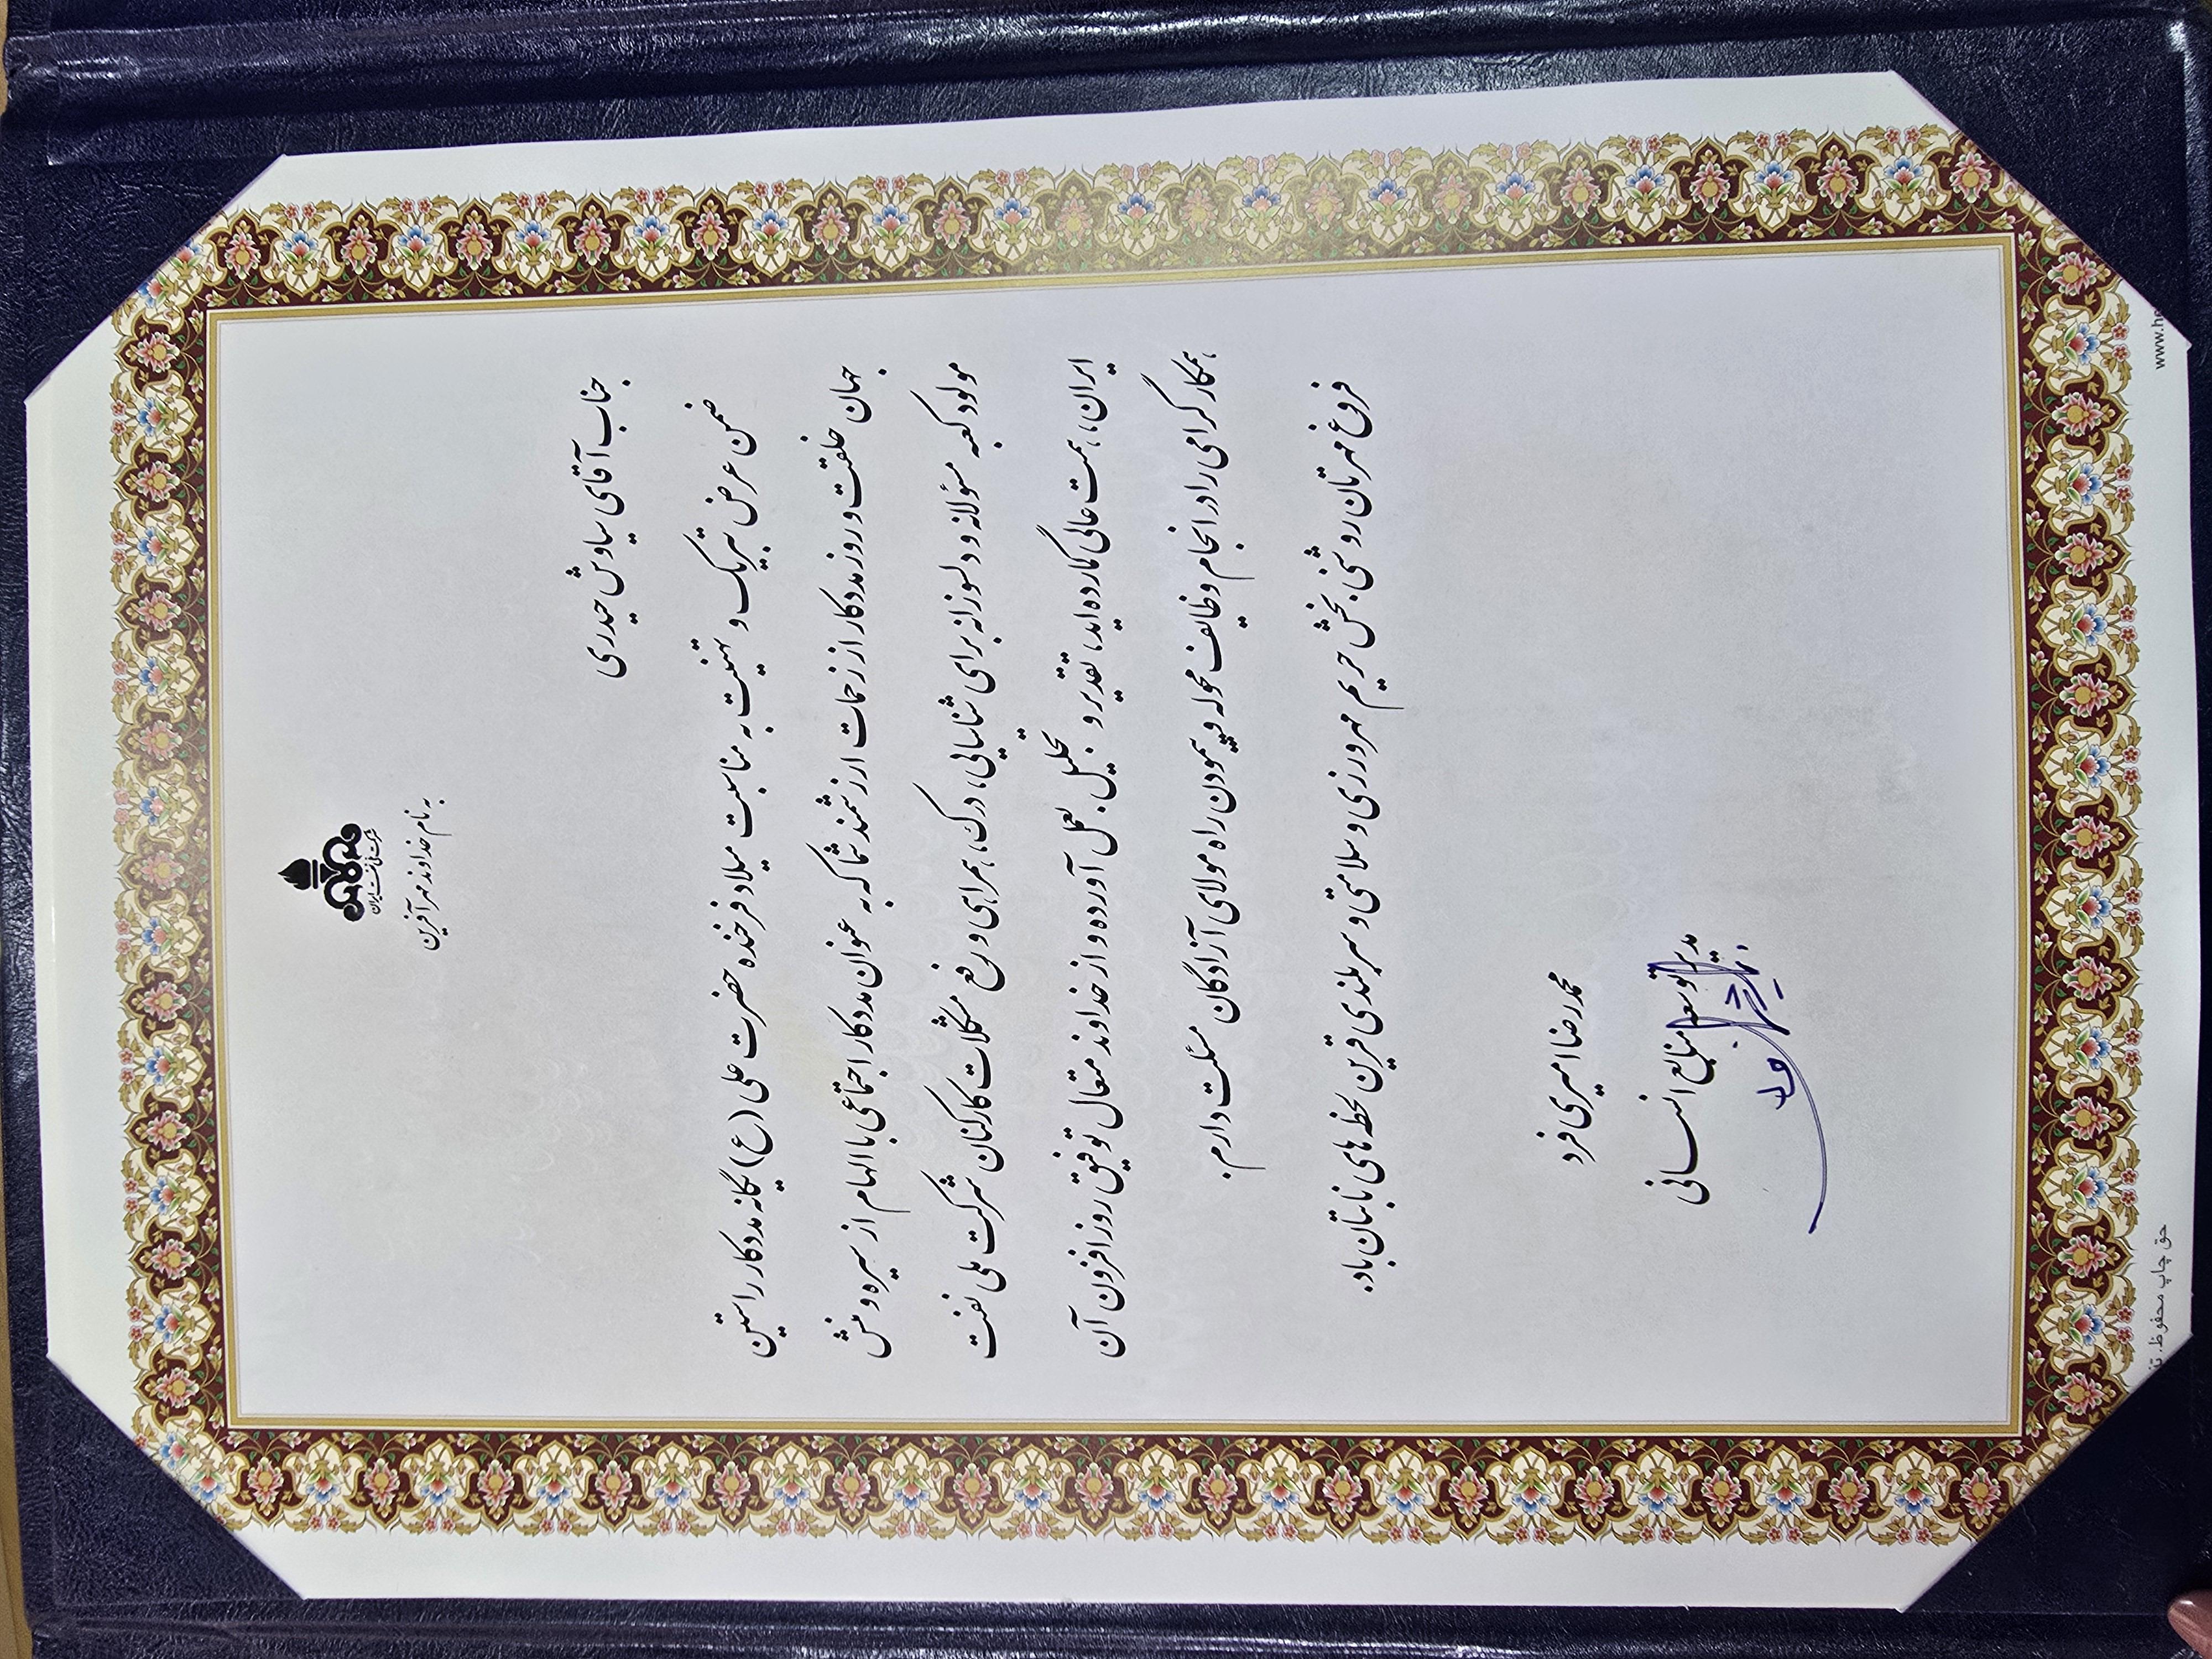 شرکت ملی نفت ایران
به نام خداوند مهر آفرین
جناب آقای سیاوش حیدری
ضمن عرض تبریک و تهنیت به مناسبت میلاد فرخنده حضرت علی (ع) یگانه مددکار راستین
جهان خلقت و روز مددکار از زحمات ارزشمند شما که به عنوان مددکار اجتماعی با الهام از سیره و منش
مولود کعبه مسؤلانه و دلسوزانه برای شناسایی، درک، همراهی و رفع مشکلات کارکنان شرکت ملی نفت
ایران، همت عالی گمارده‌اید، تقدیر و تجلیل بعمل آورده و از خداوند متعال توفیق روزافزون آن
همکار گرامی را در انجام وظایف محوله و پیمودن راه مولای آزادگان مسئلت دارم.
فروغ مهرتان روشنی بخش حریم مهرورزی و سلامتی و سربلندی قرین لحظه های نابتان باد.
محمدرضا امیری فرد
مدیر توسعه منابع انسانی
حق چاپ محفوظ
www.he